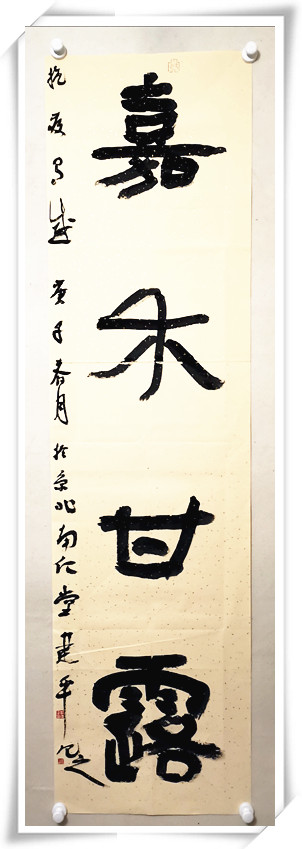 嘉禾甘露
抗疫有感 庚子春月於京北南仁堂建平记之